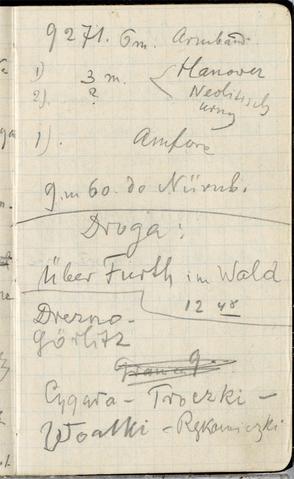 9271. 6m. Armband
1) 3 m. Hanover
2). ? Neolitisch
urny
1). Amfora
9. m 60. do Nürnb.
Droga:
über Furth im Wald
12 48
Drezno -
Görlitz
Cygara - Troczki -
Woalki - Rękawiczki